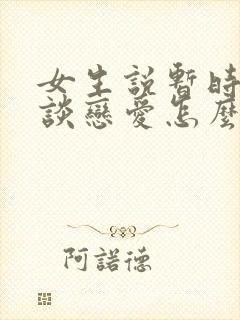 女生説暫時
談戀愛怎麼
阿諾德